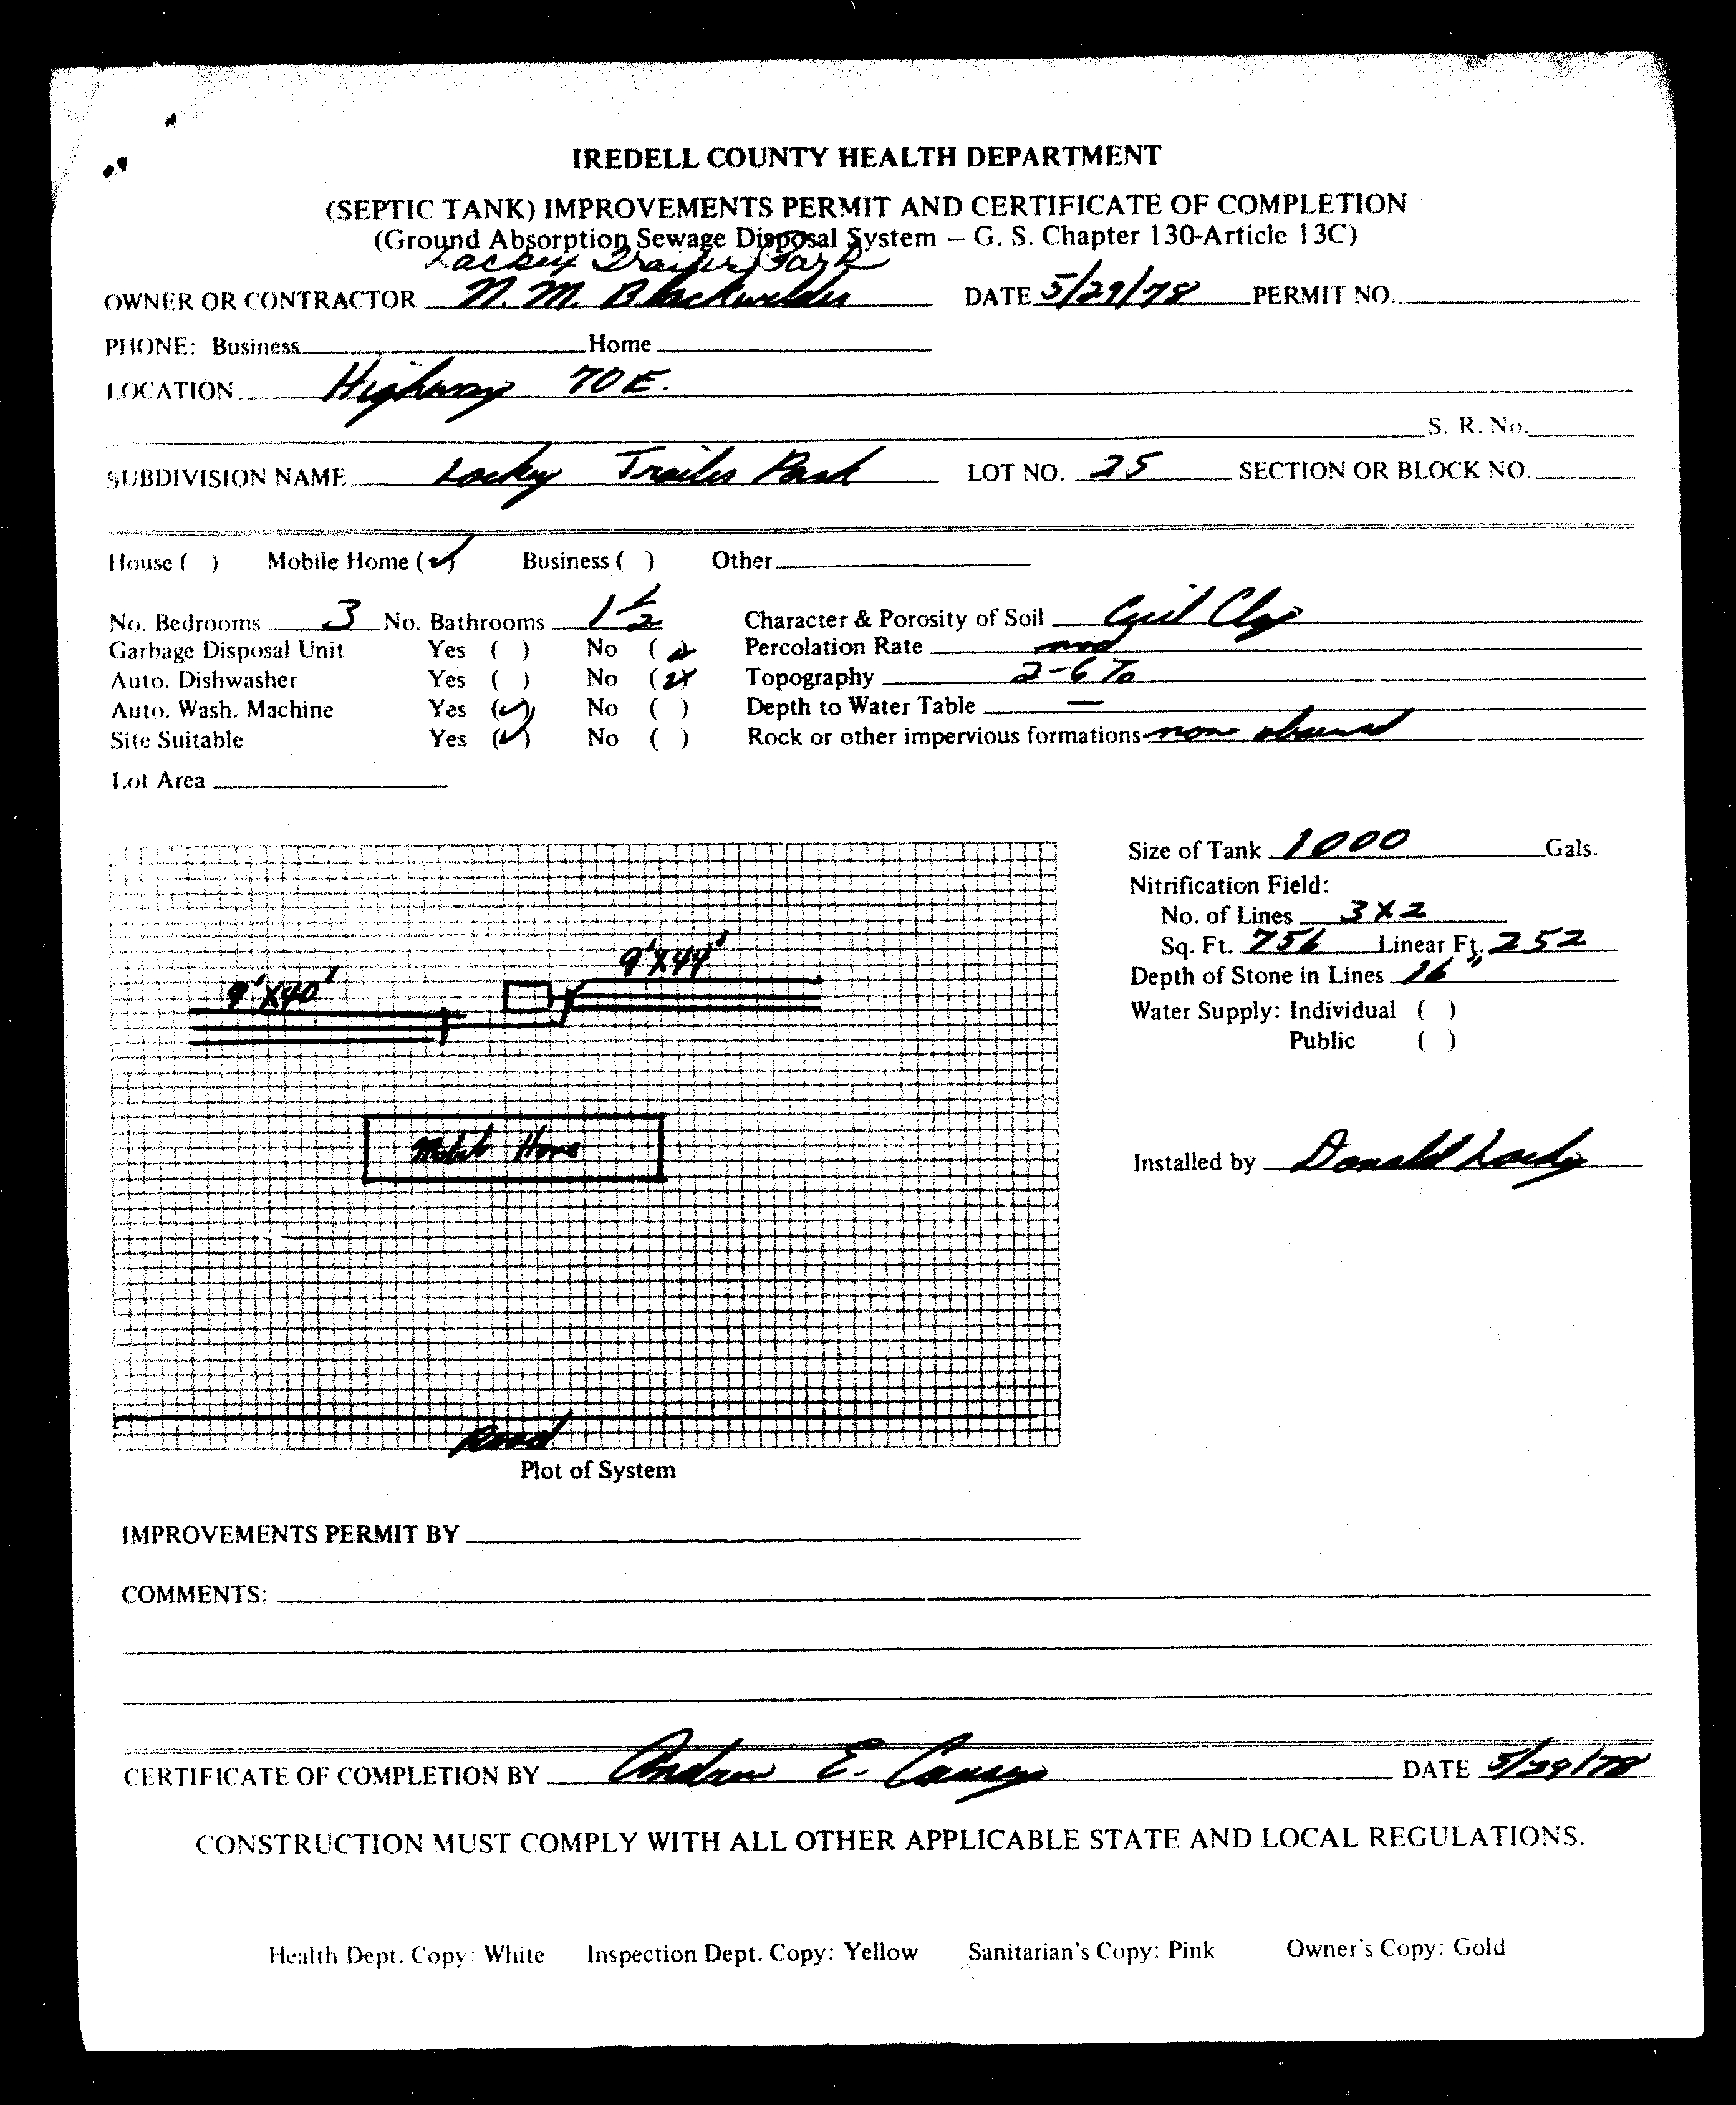 IREDELL COUNTY HEALTH DEPARTMENT
(SEPTIC TANK) IMPROVEMENTS PERMIT AND CERTIFICATE OF COMPLETION
(Ground Absorption Sewage Disposal System – G. S. Chapter 130-Article 13C)
Lackey Trailer Park
OWNER OR CONTRACTOR N. M. Blackwelder DATE 5/29/78 PERMIT NO.
PHONE: Business Home
LOCATION Highway 70 E.
S. R. No.
SUBDIVISION NAME Lackey Trailer Park LOT NO. 25 SECTION OR BLOCK NO.
House ( ) Mobile Home (✓) Business ( ) Other
No. Bedrooms 3 No. Bathrooms 1 1/2 Character & Porosity of Soil Cecil Clay
Garbage Disposal Unit Yes ( ) No (✓) Percolation Rate mod
Auto. Dishwasher Yes ( ) No (✓) Topography 2-6 %
Auto. Wash. Machine Yes (✓) No ( ) Depth to Water Table —
Site Suitable Yes (✓) No ( ) Rock or other impervious formations none observed
Lot Area
Size of Tank 1000 Gals.
Nitrification Field:
No. of Lines 3 X 2
Sq. Ft. 756 Linear Ft. 252
Depth of Stone in Lines 16"
Water Supply: Individual ( )
Public ( )
9' X 44'
9' X 40'
Mobile Home
Installed by Donald Lackey
Road
Plot of System
IMPROVEMENTS PERMIT BY
COMMENTS:
CERTIFICATE OF COMPLETION BY Andrew E. Causey DATE 5/29/78
CONSTRUCTION MUST COMPLY WITH ALL OTHER APPLICABLE STATE AND LOCAL REGULATIONS.
Health Dept. Copy: White Inspection Dept. Copy: Yellow Sanitarian's Copy: Pink Owner's Copy: Gold